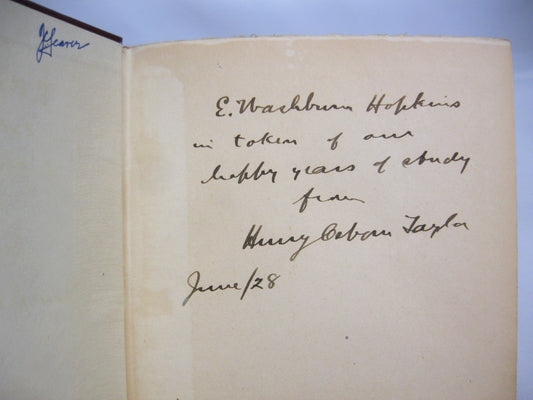 E. Washburn Hopkins
in token of our
happy years of study
from
Henry Osborn Taylor
June/28